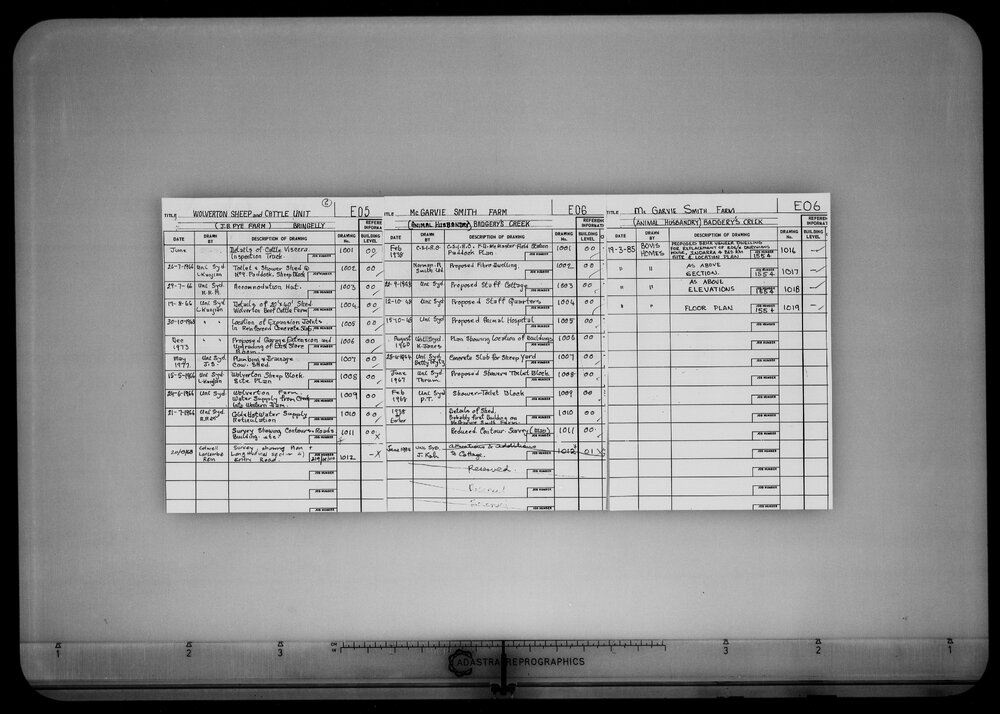 ②
TITLE WOLVERTON SHEEP and CATTLE UNIT E05
(J.B. PYE FARM) BRINGELLY
DATE DRAWN BY DESCRIPTION OF DRAWING DRAWING No. BUILDING LEVEL
June Details of Cattle Viscera Inspection Truck. 1001 00
26-7-1966 Uni Syd L. Kunjian Toilet & Shower Shed @ Nº9 Paddock, Sheep Block 1002 00
29-7-66 Uni Syd Accommodation Hut. 1003 00
19-8-66 Uni Syd L. Kunjian Details of 20'x60' Shed Wolverton Beef Cattle Farm 1004 00
30-10-1968 " " Location of Expansion Joints In Reinforced Concrete Slab 1005 00
Dec 1973 Proposed Garage Extension and Upgrading of Store Room. 1006 00
May 1977 Uni Syd J.S. Plumbing & Drainage Cow Shed. 1007 00
15-5-1966 Uni Syd L. Kunjian Wolverton Sheep Block Site Plan 1008 00
Uni Syd L. Kunjian Wolverton Farm. Water Supply from Creek into Western Farm. 1009 00
21-7-1966 Uni Syd Cold & Hot Water Supply Reticulation 1010 00
Survey Showing Contours & Roads Building etc? 1011 00 X
Survey, showing Plan & Entry Road. 1012 - X
TITLE McGARVIE SMITH FARM E06
(ANIMAL HUSBANDRY) BADGERY'S CREEK
DATE DRAWN BY DESCRIPTION OF DRAWING DRAWING No. BUILDING LEVEL
Feb 1938 C.S.I.R.O. C.S.I.R.O. F.D. McMaster Field Station Paddock Plan 1001 00
Proposed Fibro Dwelling. 1002 00
Uni Syd Proposed Staff Cottage 1003 00
12-10-48 Uni Syd Proposed Staff Quarters 1004 00
Uni Syd Proposed Animal Hospital 1005 00
August 1960 Uni Syd K. Jones Plan Showing Location of Buildings 1006 00
Uni Syd Concrete Slab for Sheep Yard 1007 00
June 1967 Uni Syd Proposed Shower & Toilet Block 1008 00
Feb 1968 Uni Syd P.T. Shower-Toilet Block 1009 00
1938 or Earlier Details of Shed. Probably First Building on McGarvie Smith Farm. 1010 00
Reduced Contour Survey (Plan) 1011 00
Uni Syd. Alterations & Additions to Cottage. 1012 01
Reserved.
TITLE Mc GARVIE SMITH FARM E06
(ANIMAL HUSBANDRY) BADGERY'S CREEK
DATE DRAWN BY DESCRIPTION OF DRAWING DRAWING No. BUILDING LEVEL
19-3-85 BOVIS HOMES PROPOSED BRICK VENEER DWELLING SITE & LOCATION PLAN 1554 1016 -
" " AS ABOVE SECTION. 1554 1017 -
AS ABOVE ELEVATIONS 1554 1018 -
" " FLOOR PLAN 1554 1019 -
1 2 3 3 2 1
ADASTRA REPROGRAPHICS